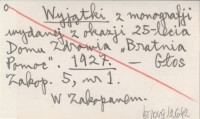 Wyjątki z monografji
wydanej z okazji 25-lecia
Domu Zdrowia „Bratnia
Pomoc". 1927. — Głos
Zakop. 5, nr 1.
W Zakopanem.